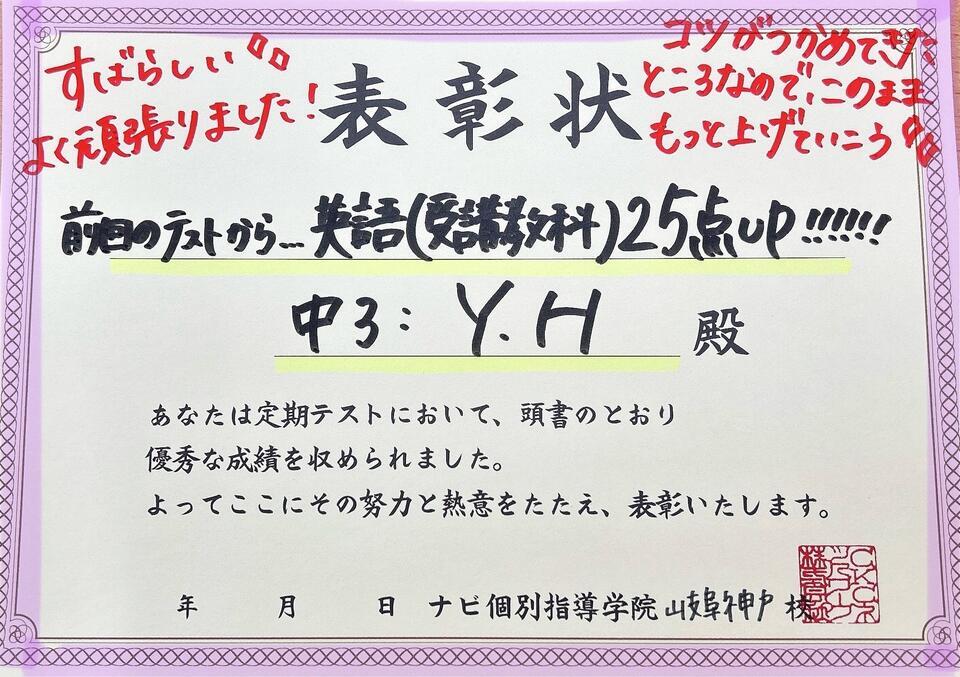 すばらしい!!
よく頑張りました!
コツがつかめてきた
ところなので、このまま
もっと上げていこう!!
表彰状
前回のテストから...英語(受講教科)25点up!!!!!!
中3: Y.H 殿
あなたは定期テストにおいて、頭書のとおり
優秀な成績を収められました。
よってここにその努力と熱意をたたえ、表彰いたします。
年 月 日 ナビ個別指導学院 岐阜神戸 校